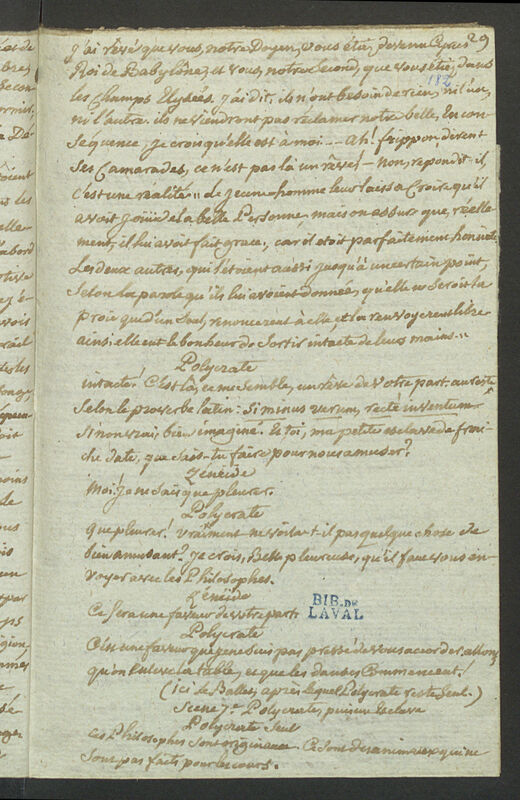 j'ai rêvé que vous, notre Doyen, vous étiés devenu Cyrus 29
Roi de Babylône, et vous, notre Second, que vous étiés dans
182
les Champs Elysées. J'ai dit, ils n'ont besoin de rien, ni l'un,
ni l'autre. ils ne viendront pas réclamer notre belle. En con-
sequence, je crois qu'elle est à moi --- Ah! frippon, dirent
ses Camarades, ce n'est pas là un rêve! — non, repondit-il,
c'est une realité.. le jeune homme leur laissa croire qu'il
avoit joüi de la belle Personne, mais on assure que, réelle-
ment, il lui avoit fait grace, car il etoit parfaitement honnête
Les deux autres, qui l'étoient aussi jusqu'à un certain point,
selon la parole qu'ils lui avoient donnée, qu'elle ne seroit la
proie que d'un seul, renoncerent à elle, et la renvoyerent libre
ainsi elle eut le bonheur de sortir intacte de leurs mains...
Polycrate
intacte! C'est là, ce me semble, un rêve de votre part. au reste
selon le proverbe latin: Si minus verum, recté inventum
si non vrai, bien imaginé. Et toi, ma petite esclave de fraî-
che date, que sais-tu faire pour nous amuser?
Zénéide
moi! je ne sais que pleurer.
Polycrate
que pleurer! vraiment ne voila-t-il pas quelque chose de
bien amusant? Je crois, Belle pleureuse, qu'il faut vous en-
voyer avec les Philosophes.
Zénéide
Ce sera une faveur de votre part.
BIB. DE
LAVAL
Polycrate
C'est une faveur que je ne suis pas pressé de vous accorder. allons
qu'on enleve la table, et que les danses Commencent!
(ici le Ballet, après lequel Polycrate reste seul.)
Scene 7e Polycrate, puis un Esclave
Polycrate seul
Ces Philosophes sont originaux. Ce sont des animaux qui ne
sont pas faits pour les cours.